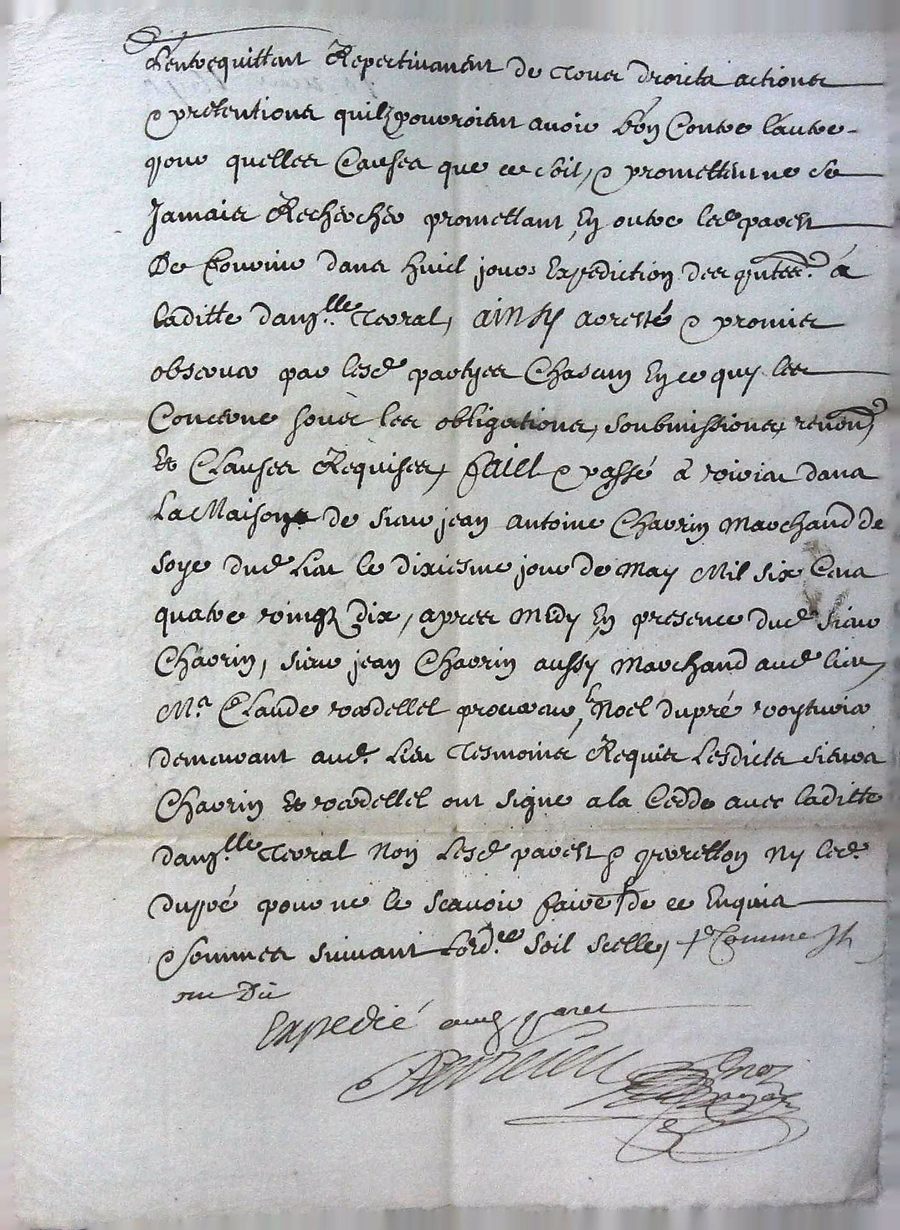 s'entrequittant Respectivement de tous droicts actions
& pretentions quilz pourroient avoir L'un Contre lautre
pour quelles Causes que ce soit, & promettent ne se
Jamais Rechercher promettant, En outre lesd
De fournir dans huict jours Expedition des p̄ntes à
laditte dam.lle ainsy arresté & promis
observer par lesd partyes Chascun En ce quy les
Concerne soubs les obligations, soubmissions, renon̄
Et Clauses Requises, faict & passé à dans
La Maison de sieur jean antoine Chavrin Marchand de
soye dud Lieu le dixiesme jour de May Mil six Cens
quatre vingt dix, apres Midy En presence dud sieur
Chavrin, sieur jean Chavrin aussy Marchand aud lieu
Me. Claude procureur, & Noel dupré voyturier
demeurant aud. Lieu Tesmoins Requis Lesdicts sieurs
Chavrin Et ont signe a la Cedde avec laditte
dam.lle Non Lesd ny led.
dupré pour ne le scavoir faire de ce Enquis
& sommes suivant Lord.ce soit scelle, Comme
Dit
Expedié